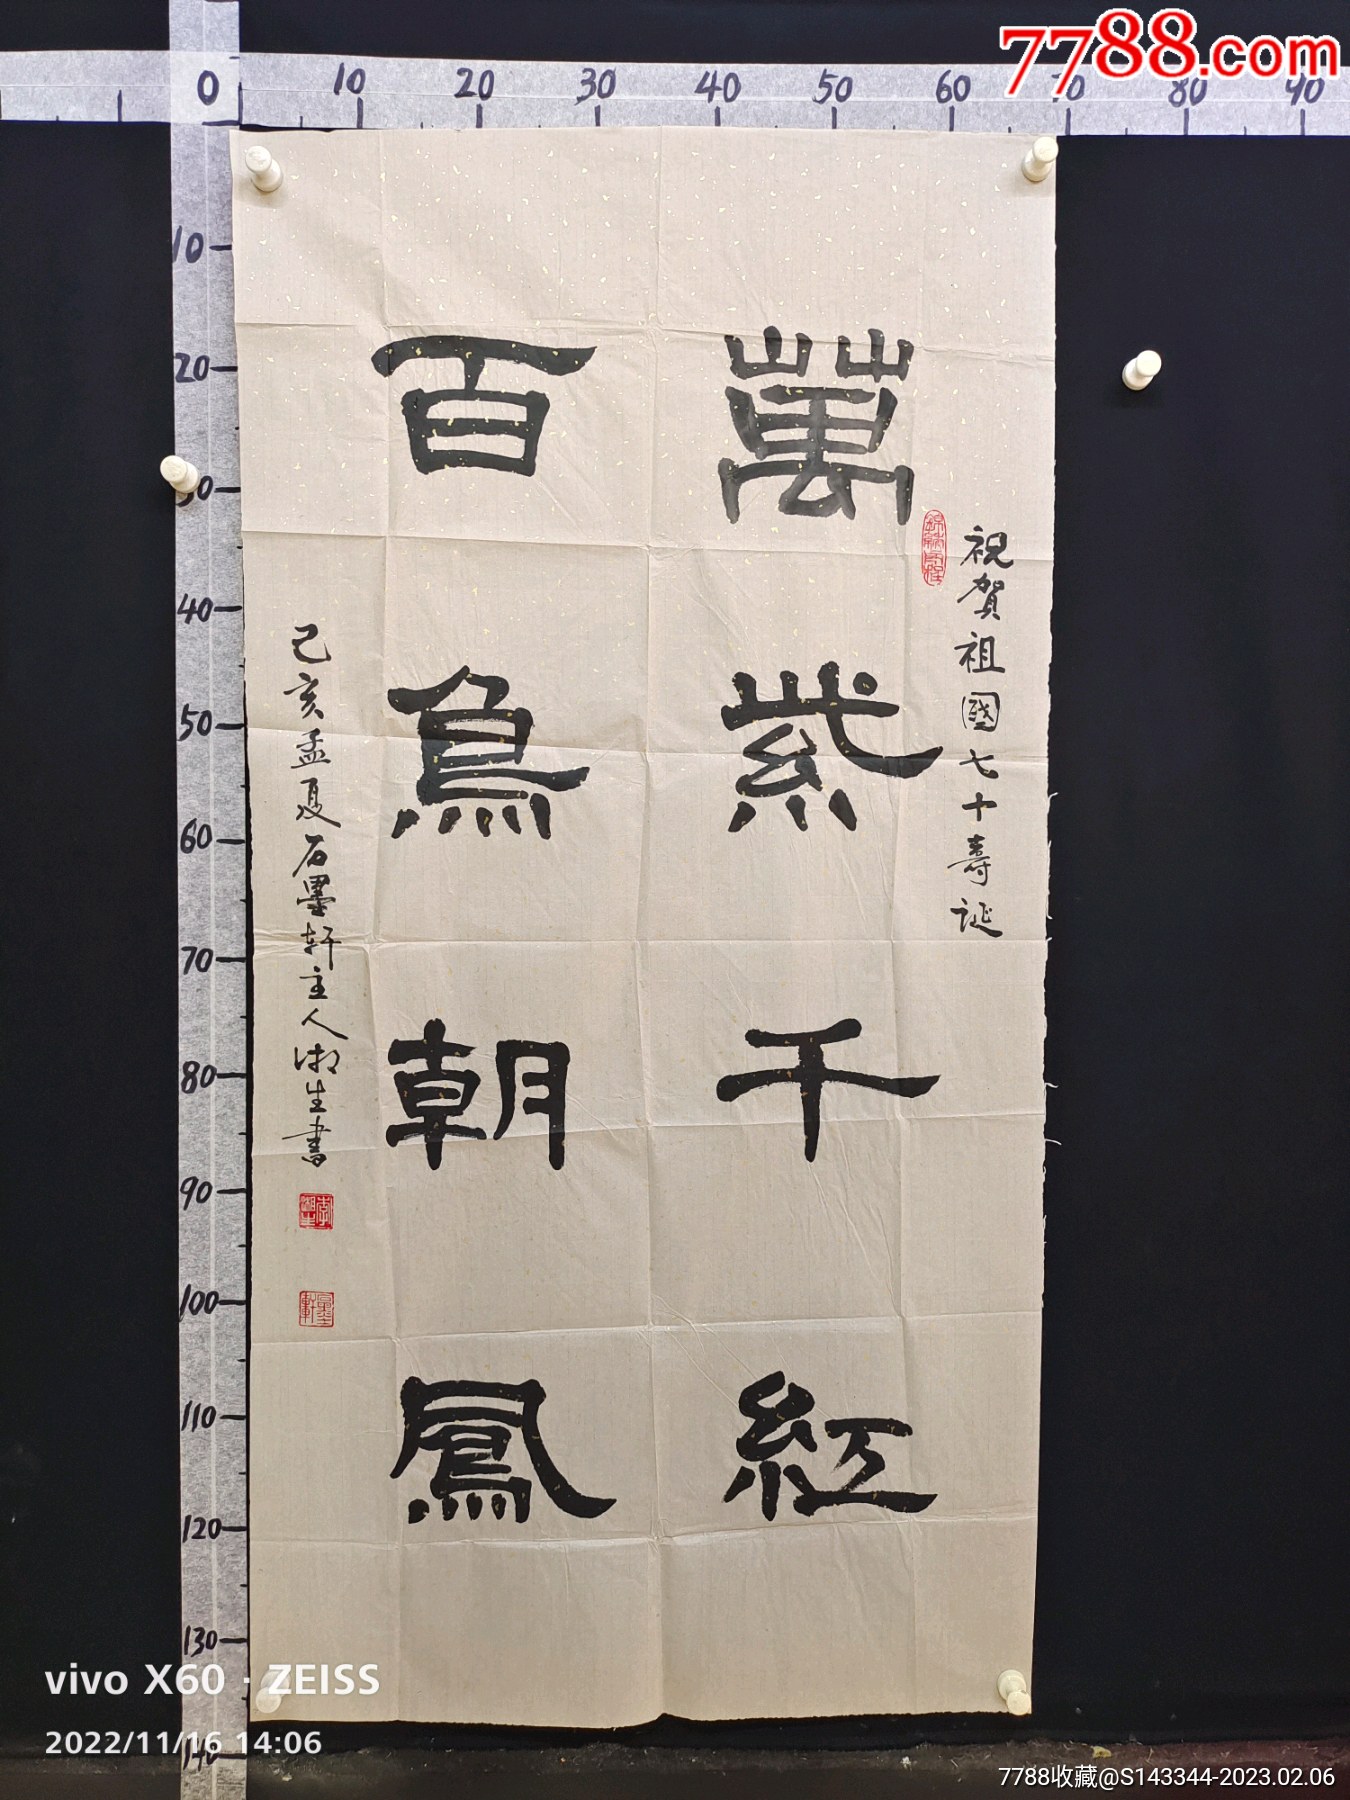 7788.com
0 10 20 30 40 50 60 70 80 90
10
20
30
40
50
60
70
80
90
100
110
120
130
140
祝賀祖國七十壽誕
萬紫千紅
百鳥朝鳳
己亥孟夏石墨軒主人湘生書
vivo X60 · ZEISS
2022/11/16 14:06
7788收藏@S143344-2023.02.06